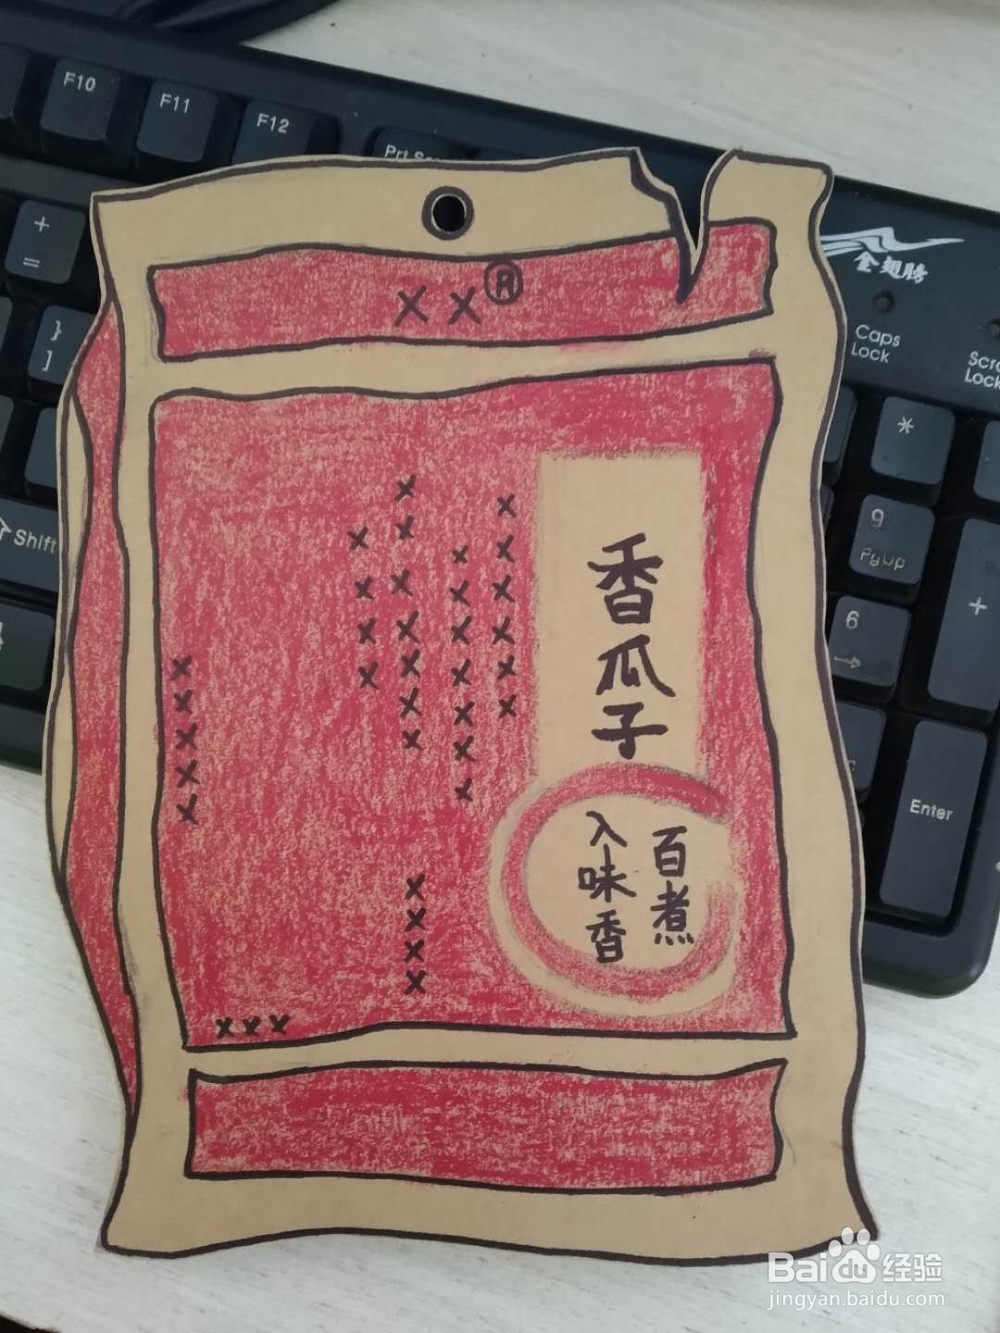 F10
F11
F12
Prt Sc
+
=
}
]
Shift
金翅膀
Caps
Lock
Scro
Lock
*
9
PgUp
6
+
Enter
XX®
香瓜子
百煮
入味香
xxxxx
xxx
xxxx
xxxxxxx
xxxx
xxxxxxx
xxxxxx
Baidu经验
jingyan.baidu.com